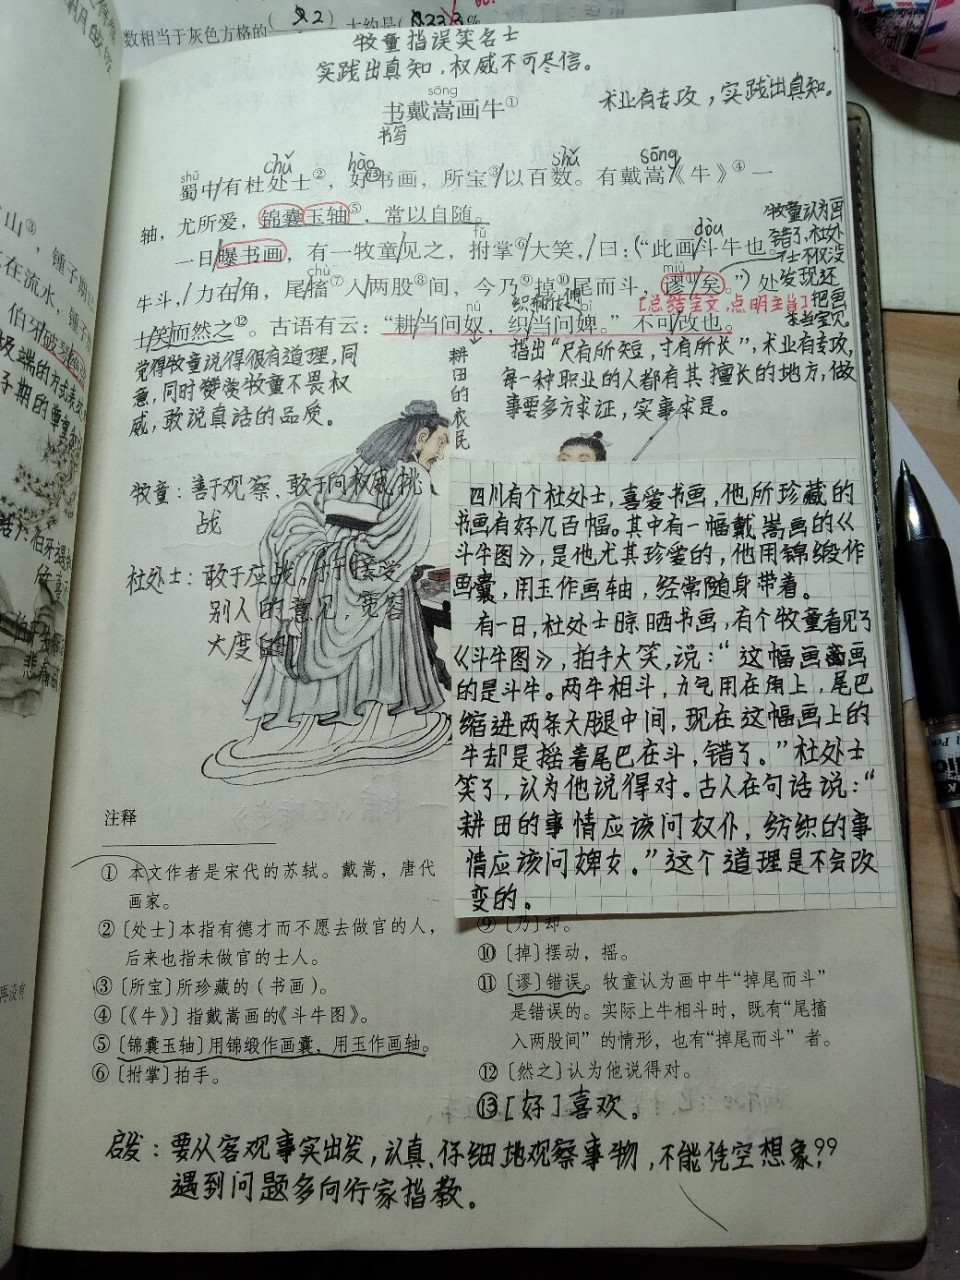 数相当于灰色方格的
牧童指误笑名士
实践出真知，权威不可尽信。
sōng
书戴嵩画牛①
书写
术业有专攻，实践出真知。
shǔ chǔ hào shǔ sōng
蜀中/有杜处士②，好⑬书画，所宝③/以百数。有戴嵩/《牛》④一
轴，尤所爱，锦囊玉轴⑤，常以自随。
fǔ dòu
一日/曝书画，有一牧童/见之，拊掌⑥/大笑，/曰：“此画/斗牛也。
chù miù
牛斗，/力在/角，尾/搐⑦入/两股⑧间，今乃⑨掉⑩尾而斗，谬⑪/矣。”处
[总结全文，点明主旨]
nú
士/笑而然之⑫。古语有云：“耕/当问奴，织/当问婢。”不可/改也。
牧童认为画
错了，杜处
士不仅没
发现还
把画
当宝贝。
觉得牧童说得很有道理，同
意，同时赞美牧童不畏权
威，敢说真话的品质。
耕田的农民
指出“尺有所短，寸有所长”，术业有专攻，
每一种职业的人都有其擅长的地方，做
事要多方求证，实事求是。
牧童：善于观察、敢于向权威挑
战
杜处士：敢于应战，乐于接受
别人的意见，宽容
大度
四川有个杜处士，喜爱书画，他所珍藏的
书画有好几百幅。其中有一幅戴嵩画的《
斗牛图》，是他尤其珍爱的，他用锦缎作
画囊，用玉作画轴，经常随身带着。
有一日，杜处士晾晒书画，有个牧童看见了
《斗牛图》，拍手大笑，说：“这幅画画
的是斗牛。两牛相斗，力气用在角上，尾巴
缩进两条大腿中间，现在这幅画上的
牛却是摇着尾巴在斗，错了。”杜处士
笑了，认为他说得对。古人在句话说：“
耕田的事情应该问奴仆，纺织的事
情应该问婢女。”这个道理是不会改
变的。
注释
① 本文作者是宋代的苏轼。戴嵩，唐代
画家。
②〔处士〕本指有德才而不愿去做官的人，
后来也指未做官的士人。
③〔所宝〕所珍藏的（书画）。
④〔《牛》〕指戴嵩画的《斗牛图》。
⑤〔锦囊玉轴〕用锦缎作画囊，用玉作画轴。
⑥〔拊掌〕拍手。
⑨〔乃〕却。
⑩〔掉〕摆动，摇。
⑪〔谬〕错误。牧童认为画中牛“掉尾而斗”
是错误的。实际上牛相斗时，既有“尾搐
入两股间”的情形，也有“掉尾而斗”者。
⑫〔然之〕认为他说得对。
⑬[好]喜欢。
启发：要从客观事实出发，认真、仔细地观察事物，不能凭空想象，
遇到问题多向行家指教。
99